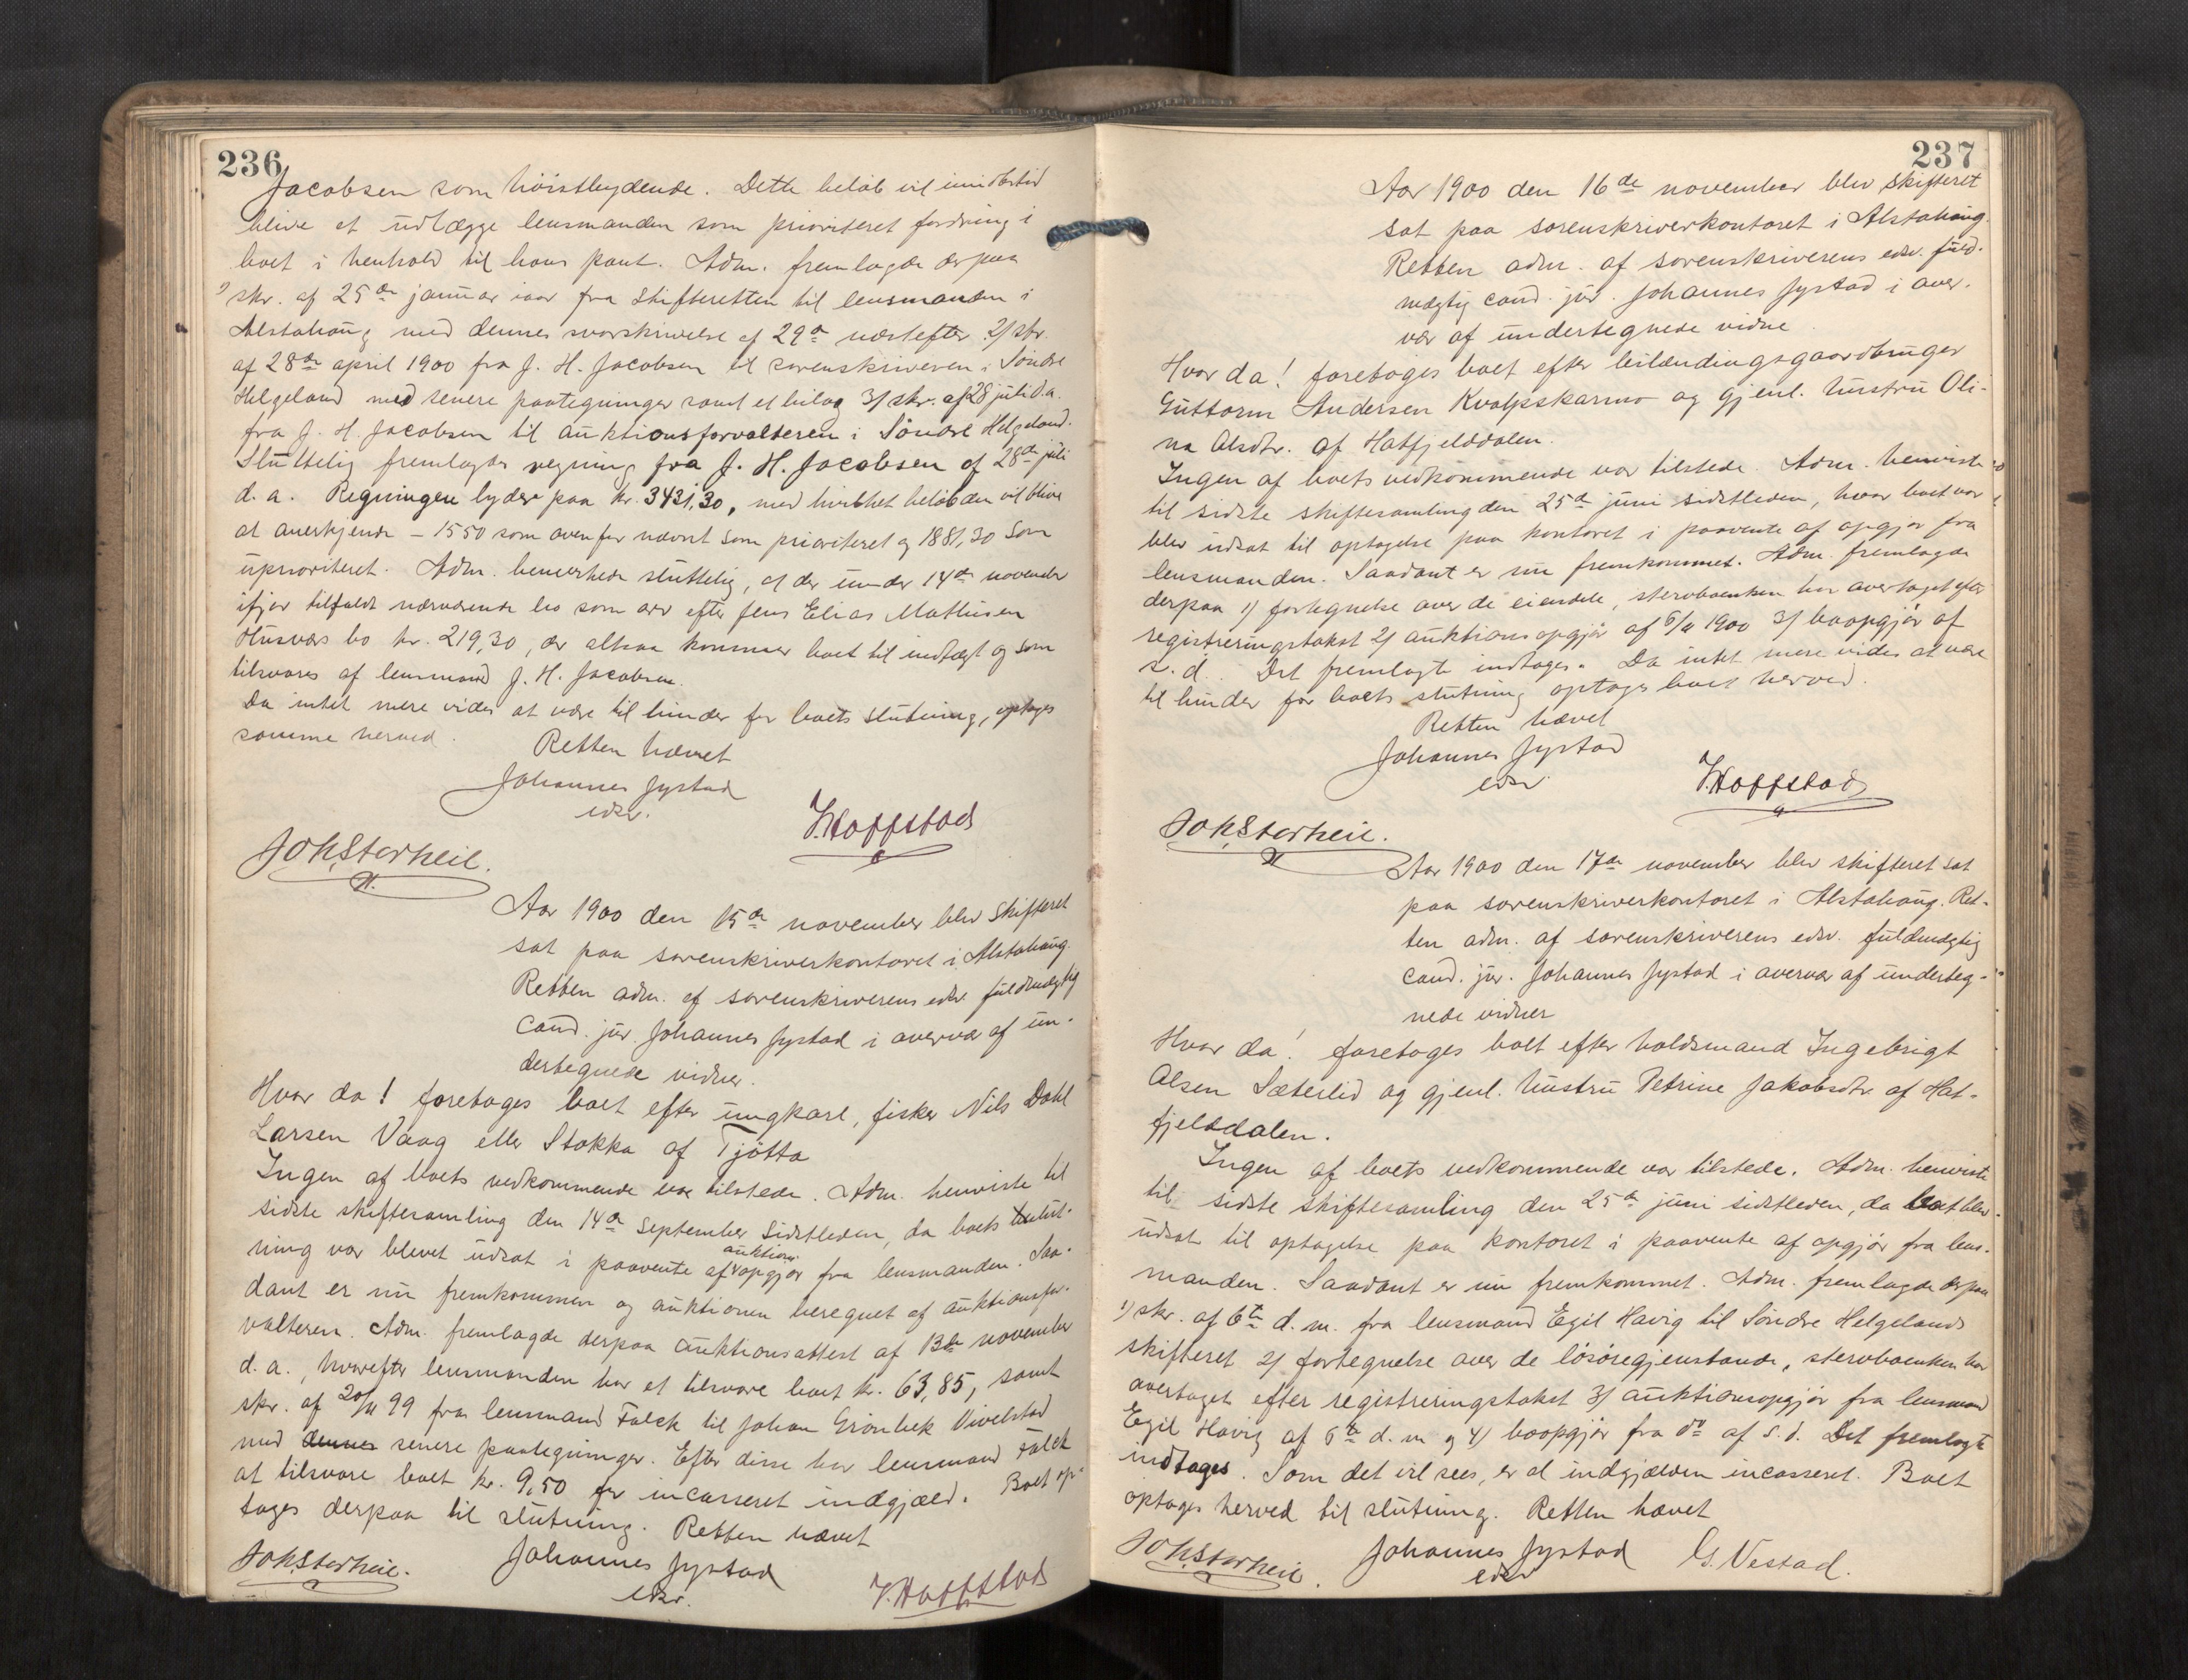 236
Jacobsen som höistbydende. Dette beløb vil imidlertid
blive at udlægge lensmanden som prioriteret fordring i
boet i henhold til hans pant. Adm. fremlagde derpaa
1) skr. af 25de januar iaar fra skifteretten til lensmanden i
Alstahaug med dennes svarskrivelse af 29de næstefter 2) skr.
af 28de april 1900 fra J. H. Jacobsen til sorenskriveren i Söndre
Helgeland med senere paategninger samt et bilag 3) skr. af 28 juli d.a.
fra J. H. Jacobsen til auktionsforvalteren i Söndre Helgeland.
Sluttelig fremlagdes regning fra J. H. Jacobsen af 28de juli
d. a. Regningen lyder paa kr. 3431,30, med hvilket beløb den vil blive
at anerkjende – 1550 som ovenfor nævnt som prioriteret og 1881,30 som
uprioriteret. Adm. bemerkede sluttelig, at der under 14de november
ifjor tilfaldt nærværende bo som arv efter Jens Elias Mathisen
Husvær's bo kr. 219,30, der altsaa kommer boet til indtægt og som
tilsvares af lensmand J. H. Jacobsen.
Da intet mere vides at være til hinder for boets slutning, optages
samme herved.
Retten hævet
Johannes Jystad
edsv.
J. Hoffstad
Joh. Storheil.
Aar 1900 den 15de november blev skifteret
sat paa sorenskriverkontoret i Alstahaug.
Retten adm. af sorenskriverens edsv. fuldmægtig
cand. jur. Johannes Jystad i overvær af un-
dertegnede vidner.
Hvor da! foretoges boet efter ungkarl, fisker Nils Dahl
Larsen Vaag eller Stokka af Tjötta
Ingen af boets vedkommende var tilstede. Adm. henviste til
sidste skiftesamling den 14de September sidstleden, da boets slut-
ning var blevet udsat i paavente af auktionsopgjör fra lensmanden. Saa-
dant er nu fremkommen og auktionen beregnet af auktionsfor-
valteren. Adm. fremlagde derpaa auktionsattest af 13de november
d. a., hvorefter lensmanden har at tilsvare boet kr. 63,85, samt
skr. af 20/11 99 fra lensmand Falck til Johan Grönbek Vivelstad
med dennes senere paategninger. Efter disse har lensmand Falck
at tilsvare boet kr. 9,50 for incasseret indgjæld. Boet op-
tages derpaa til slutning. Retten hævet
Joh. Storheil.
Johannes Jystad
edsv.
J. Hoffstad
237
Aar 1900 den 16de november blev skifteret
sat paa sorenskriverkontoret i Alstahaug.
Retten adm. af sorenskriverens edsv. fuld-
mægtig cand. jur. Johannes Jystad i over-
vær af undertegnede vidne
Hvor da! foretoges boet efter leilændingsgaardbruger
Guttorm Andersen Kvalpskarmo og gjenl. hustru Oli-
na Olsdtr. af Hatfjelddalen.
Ingen af boets vedkommende var tilstede. Adm. henviste
til sidste skiftesamling den 25de juni sidstleden, hvor boet var
blev udsat til optagelse paa kontoret i paavente af opgjør fra
lensmanden. Saadant er nu fremkommet. Adm. fremlagde
derpaa 1) fortegnelse over de eiendele, stervboenken har overtaget efter
registreringstakst 2) auktionsopgjör af 6/11 1900 3) boopgjör af
s. d. Det fremlagte indtages. Da intet mere vides at være
til hinder for boets slutning optages boet herved.
Retten hævet
Johannes Jystad
edsv
J. Hoffstad
Joh. Storheil.
Aar 1900 den 17de november blev skifteret sat
paa sorenskriverkontoret i Alstahaug. Ret-
ten adm. af sorenskriverens edsv. fuldmægtig
cand. jur. Johannes Jystad i overvær af underteg-
nede vidner
Hvor da! foretoges boet efter holdsmand Ingebrigt
Olsen Sæterlid og gjenl. hustru Petrine Jakobsdtr. af Hat-
fjelddalen.
Ingen af boets vedkommende var tilstede. Adm. henviste
til sidste skiftesamling den 25de juni sidstleden, da boet blev
udsat til optagelse paa kontoret i paavente af opgjör fra lens-
manden. Saadant er nu fremkommet. Adm. fremlagde derpaa
1) skr. af 6te d. m. fra lensmand Egil Havig til Söndre Helgelands
skifteret 2) fortegnelse over de lösöregjenstande, stervboenken har
overtaget efter registreringstakst 3) auktionsopgjör fra lensmand
Egil Havig af 6te d. m og 4) boopgjör fra do af s. d. Det fremlagte
indtages. Som det vil sees, er al indgjælden incasseret. Boet
optages herved til slutning. Retten hævet
Joh. Storheil.
Johannes Jystad
edsv
G. Vestad.